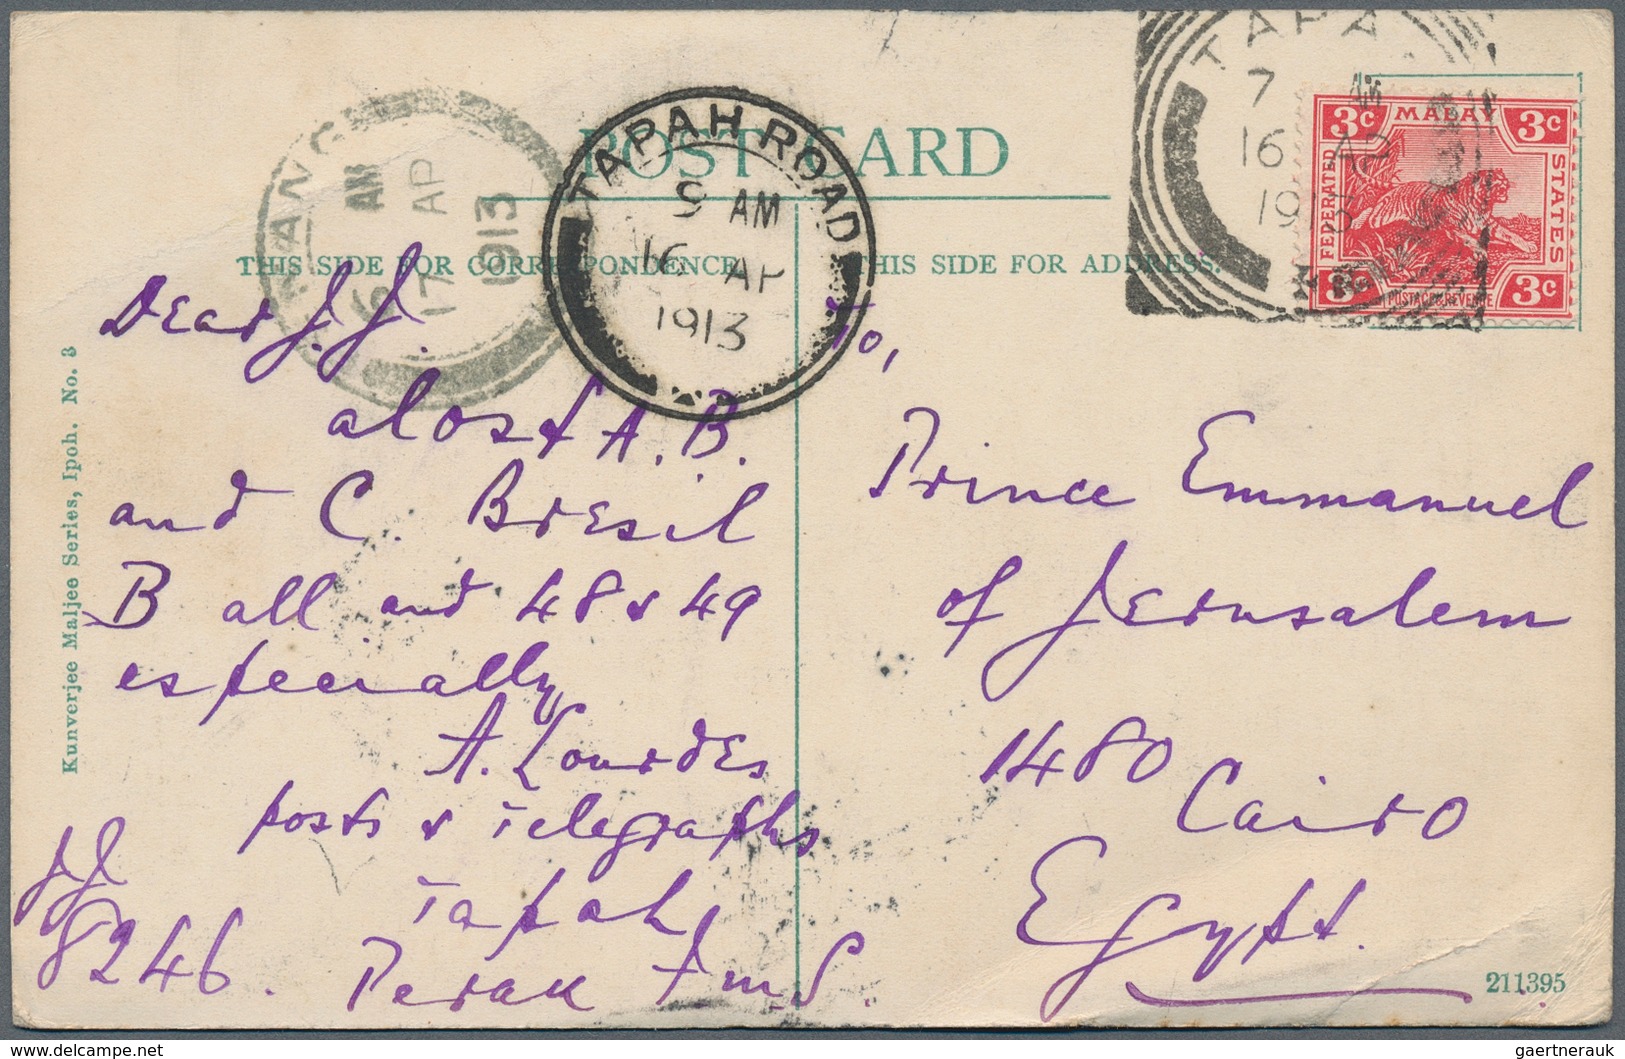 POST CARD
THIS SIDE FOR CORRESPONDENCE.
THIS SIDE FOR ADDRESS.
TAPAH ROAD
9 AM
16 AP
1913
AM
17 AP
1913
TAPA
7
16 AP
1913
3c MALAY 3c
FEDERATED
STATES
POSTAGE & REVENUE
3c
Kunverjee Maljee Series, Ipoh. No. 3
Dear J.J.
alost A.B.
and C. Bresil
B all and 48 & 49
especially
A. Lourdes
posts & Telegraphs
Tapah
Perak FmS.
JJ
8246.
To,
Prince Emmanuel
of Jerusalem
1480
Cairo
Egypt.
211395
delcampe.net
gaertnerauk